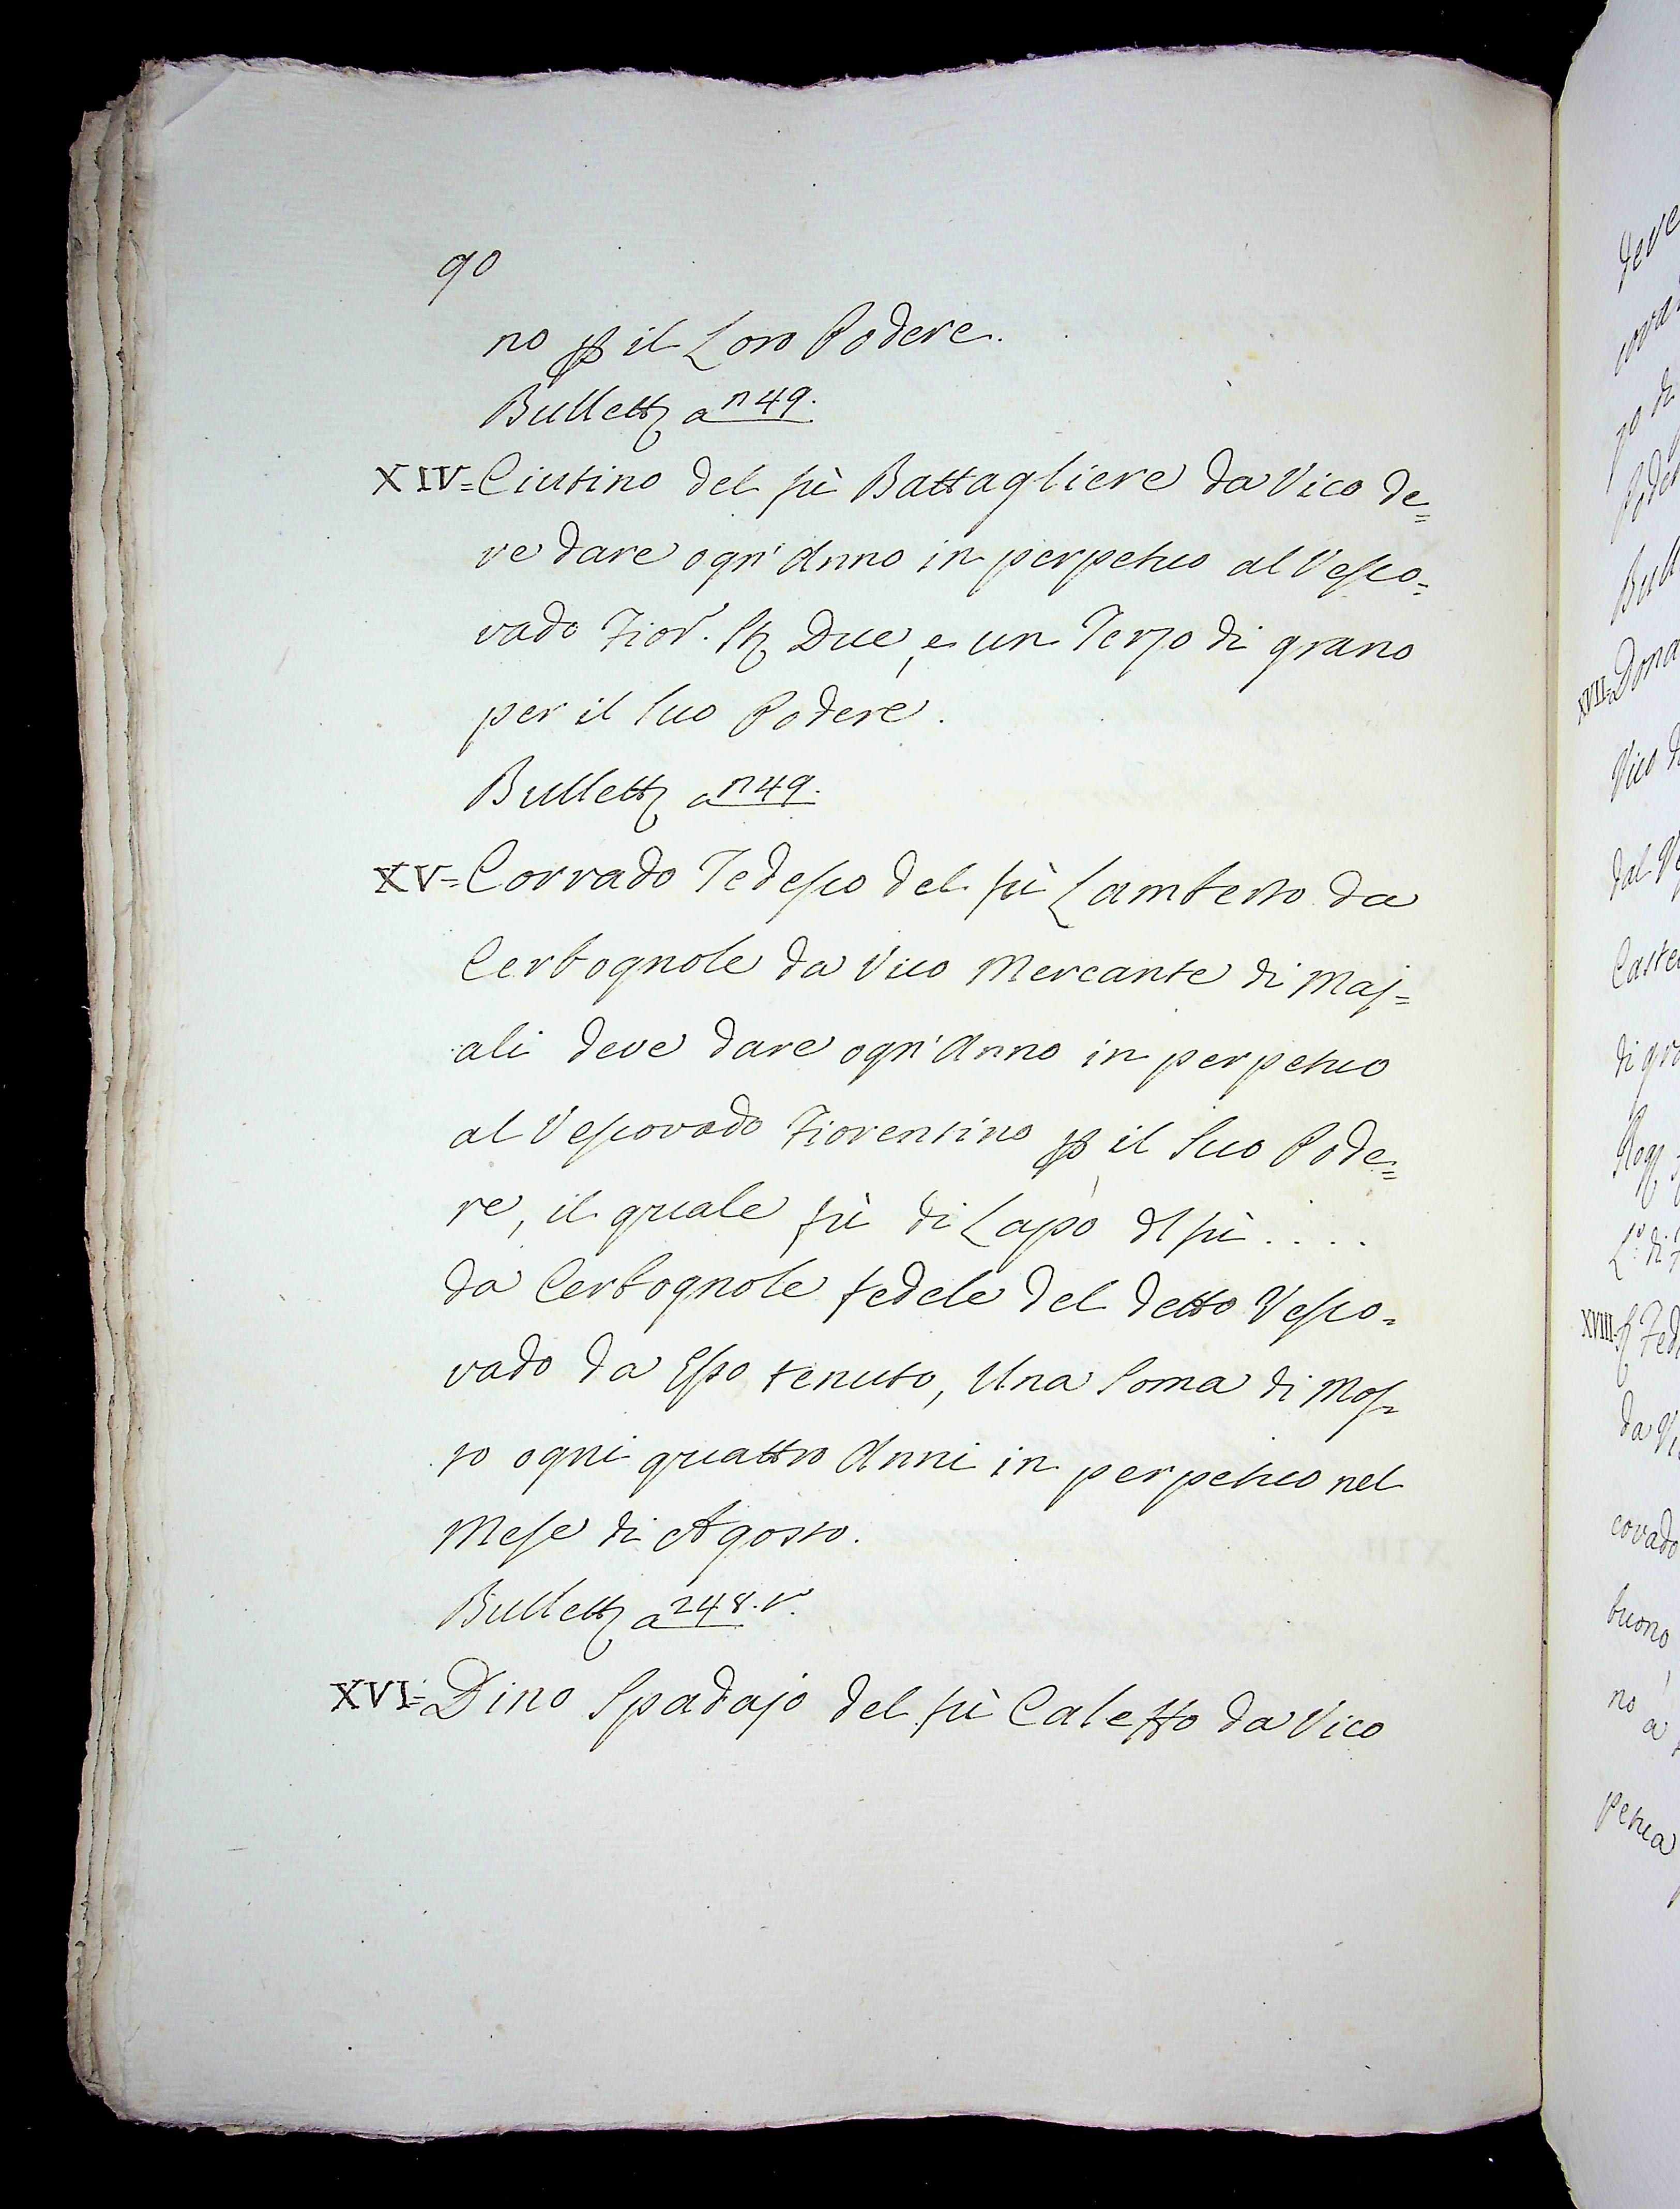 90
no ꝑ il Loro Podere.
Bullett. a n 49.
XIV=Ciutino del fù Battagliere da Vico de=
ve dare ogn'Anno in perpetuo al Vesco=
vado Fior. St. Due, e un Terzo di grano
per il suo Podere.
Bullett. a n 49.
XV=Corrado Tedesco del fù Lamberto da
Cerbognole da Vico Mercante di Maj=
ali deve dare ogn'Anno in perpetuo
al Vescovado Fiorentino ꝑ il Suo Pode=
re, il quale fù di Lapo dl fù ....
da Cerbognole fedele del detto Vesco=
vado da Esso tenuto, Una Soma di Mos=
to ogni quattro Anni in perpetuo nel
Mese di Agosto.
Bullett. a 248. v.
XVI=Dino Spadajo del fù Caletto da Vico
deve
Bull
XVII=Dona
Vico d
dal Ve
Caste
di gra
XVIII=
da Vi
covado
buono
no a
petua